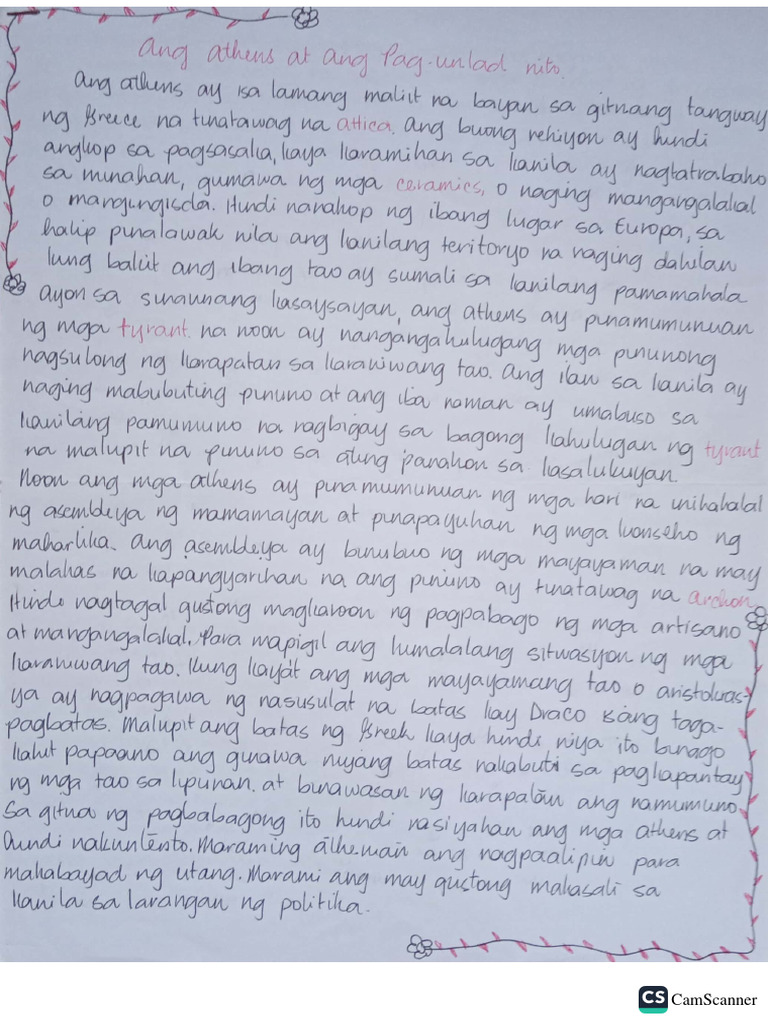 Ang athens at ang Pag-unlad nito.
Ang athens ay isa lamang maliit na bayan sa gitnang tangway
ng Greece na tinatawag na attica. Ang buong rehiyon ay hindi
angkop sa pagsasalia, kaya karamihan sa kanila ay nagtatrabaho
sa minahan, gumawa ng mga ceramics, o naging mangangalakal
o mangingisda. Hindi nanakop ng ibang lugar sa Europa, sa
halip pinalawak nila ang kanilang teritoryo na naging dahilan
kung bakit ang ibang tao ay sumali sa kanilang pamamahala
ayon sa sinaunang kasaysayan, ang athens ay pinamumunuan
ng mga tyrant. na noon ay nangangahulugang mga pinunong
nagsulong ng karapatan sa karaniwang tao. Ang ilan sa kanila ay
naging mabubuting pinuno at ang iba naman ay umabuso sa
kanilang pamumuno na nagbigay sa bagong kahulugan ng tyrant
na malupit na pinuno sa ating panahon sa kasalukuyan.
Noon ang mga athens ay pinamumunuan ng mga hari na inihahalal
ng asembleya ng mamamayan at pinapayuhan ng mga konseho ng
maharlika. Ang asembleya ay binubuo ng mga mayayaman na may
malakas na kapangyarihan na ang pinuno ay tinatawag na archon
Hindi nagtagal gustong magkaroon ng pagpabago ng mga artisano
at mangangalakal. Para mapigil ang lumalalang sitwasyon ng mga
karaniwang tao. Kung kaya't ang mga mayayamang tao o aristokras-
ya ay nagpagawa ng nasusulat na batas kay Draco isang taga-
pagbatas. Malupit ang batas ng Greek kaya hindi niya ito binago
kahit papaano ang ginawa niyang batas nakabuti sa pagkapantay
ng mga tao sa lipunan. at binawasan ng karapatan ang namumuno.
Sa gitna ng pagbabagong ito hindi nasiyahan ang mga athens at
hindi nakuntento. Maraming athenian ang nagpaalipin para
makabayad ng utang. Marami ang may gustong makasali sa
kanila sa larangan ng politika.
CS CamScanner